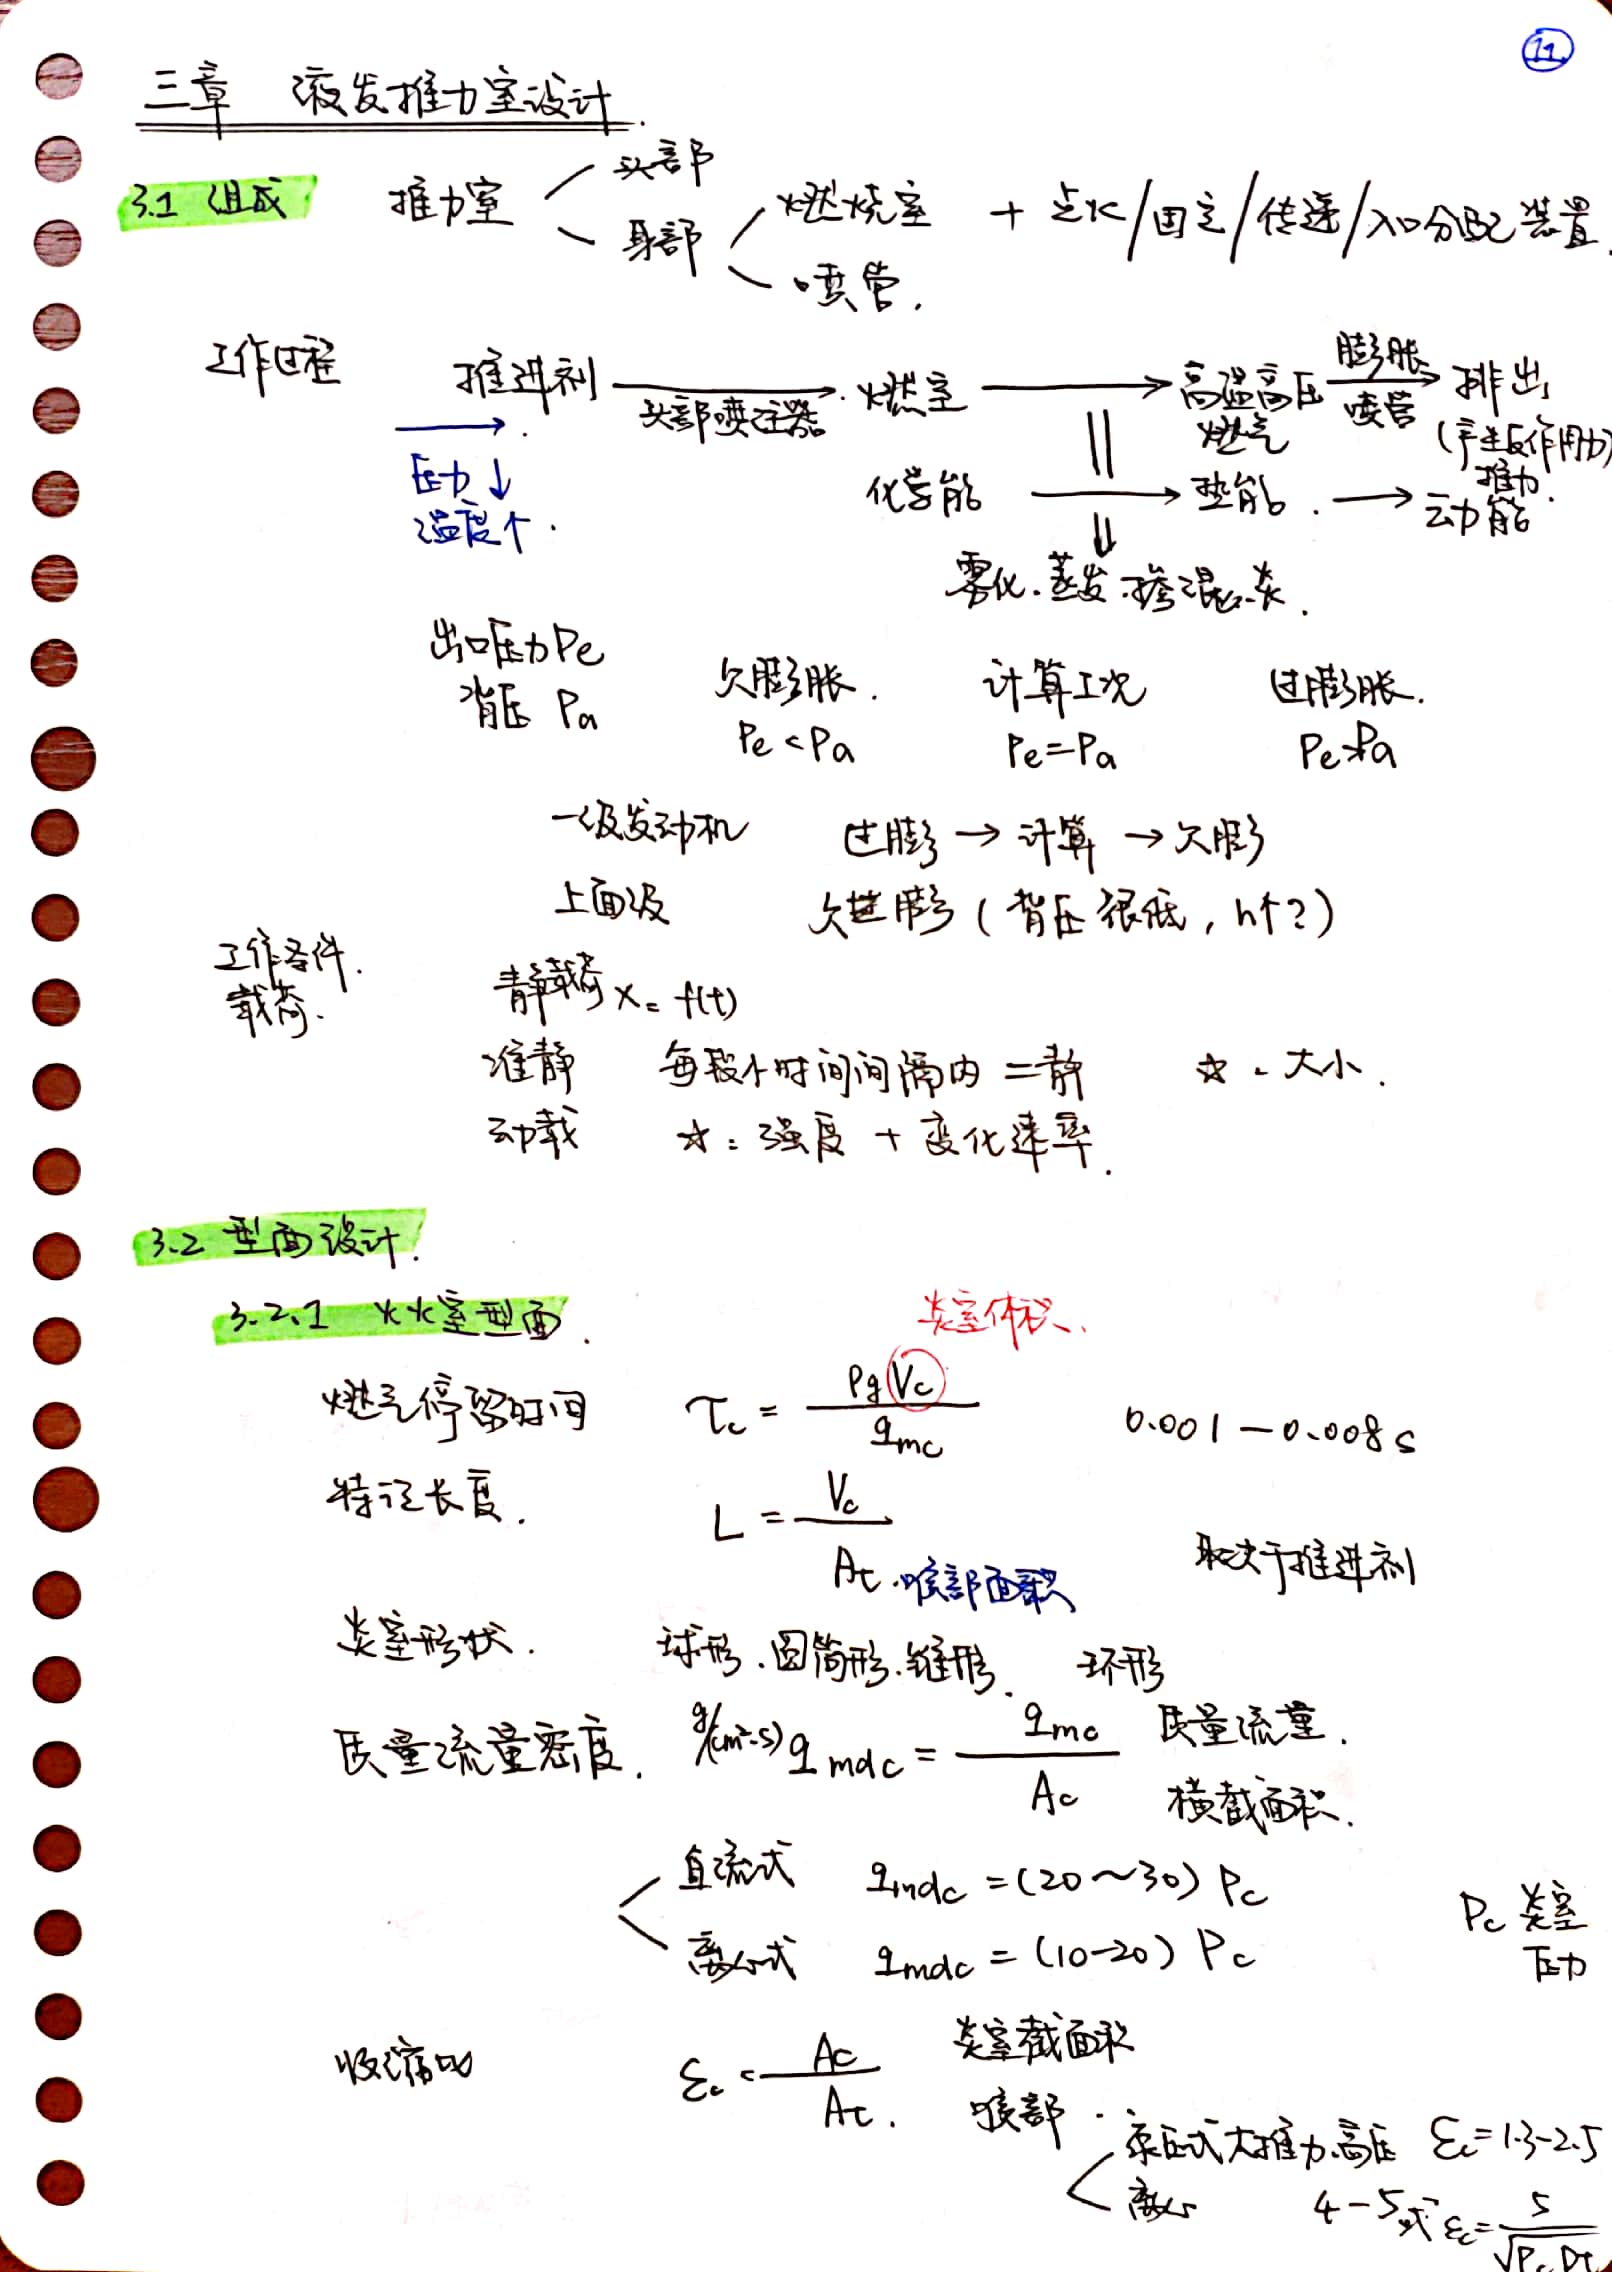 11
三章 液发推力室设计.
3.1 组成 推力室 头部 身部 燃烧室 喷管. + 点火/固定/传递/入口分配装置.
工作过程 推进剂 头部喷注器 燃室 高温高压燃气 膨胀 喷管 排出
(产生反作用力) 推力.
压力↓
温度↑.
化学能 → 热能. → 动能
雾化.蒸发.掺混.炎.
出口压力Pe
背压 Pa
欠膨胀. 计算工况 过膨胀.
Pe<Pa Pe=Pa Pe>Pa
一级发动机 过膨→计算→欠膨
上面级 欠膨(背压很低, h↑?)
工作条件.
载荷. 静载荷 x = f(t)
准静 每段小时间间隔内 = 静 ☆. 大小.
动载 ☆: 强度 + 变化速率.
3.2 型面设计.
3.2.1 火火室型面.
炎室体积.
燃气停留时间 τc = ρg Vc / qmc 0.001-0.008s
特征长度. L = Vc / At. 喉部面积 取决于推进剂
炎室形状. 球形.圆筒形.锥形. 环形
质量流量密度. g/(cm²·s) qmdc = qmc / Ac 质量流量. 横截面积.
直流式 qmdc = (20~30) Pc
离心式 qmdc = (10-20) Pc
Pc 炎室
压力
收缩比 εc = Ac / At. 炎室截面积 喉部.
泵压式大推力.高压 εc = 1.3-2.5
离心 4-5 或 εc = 5 / √Pc Dt